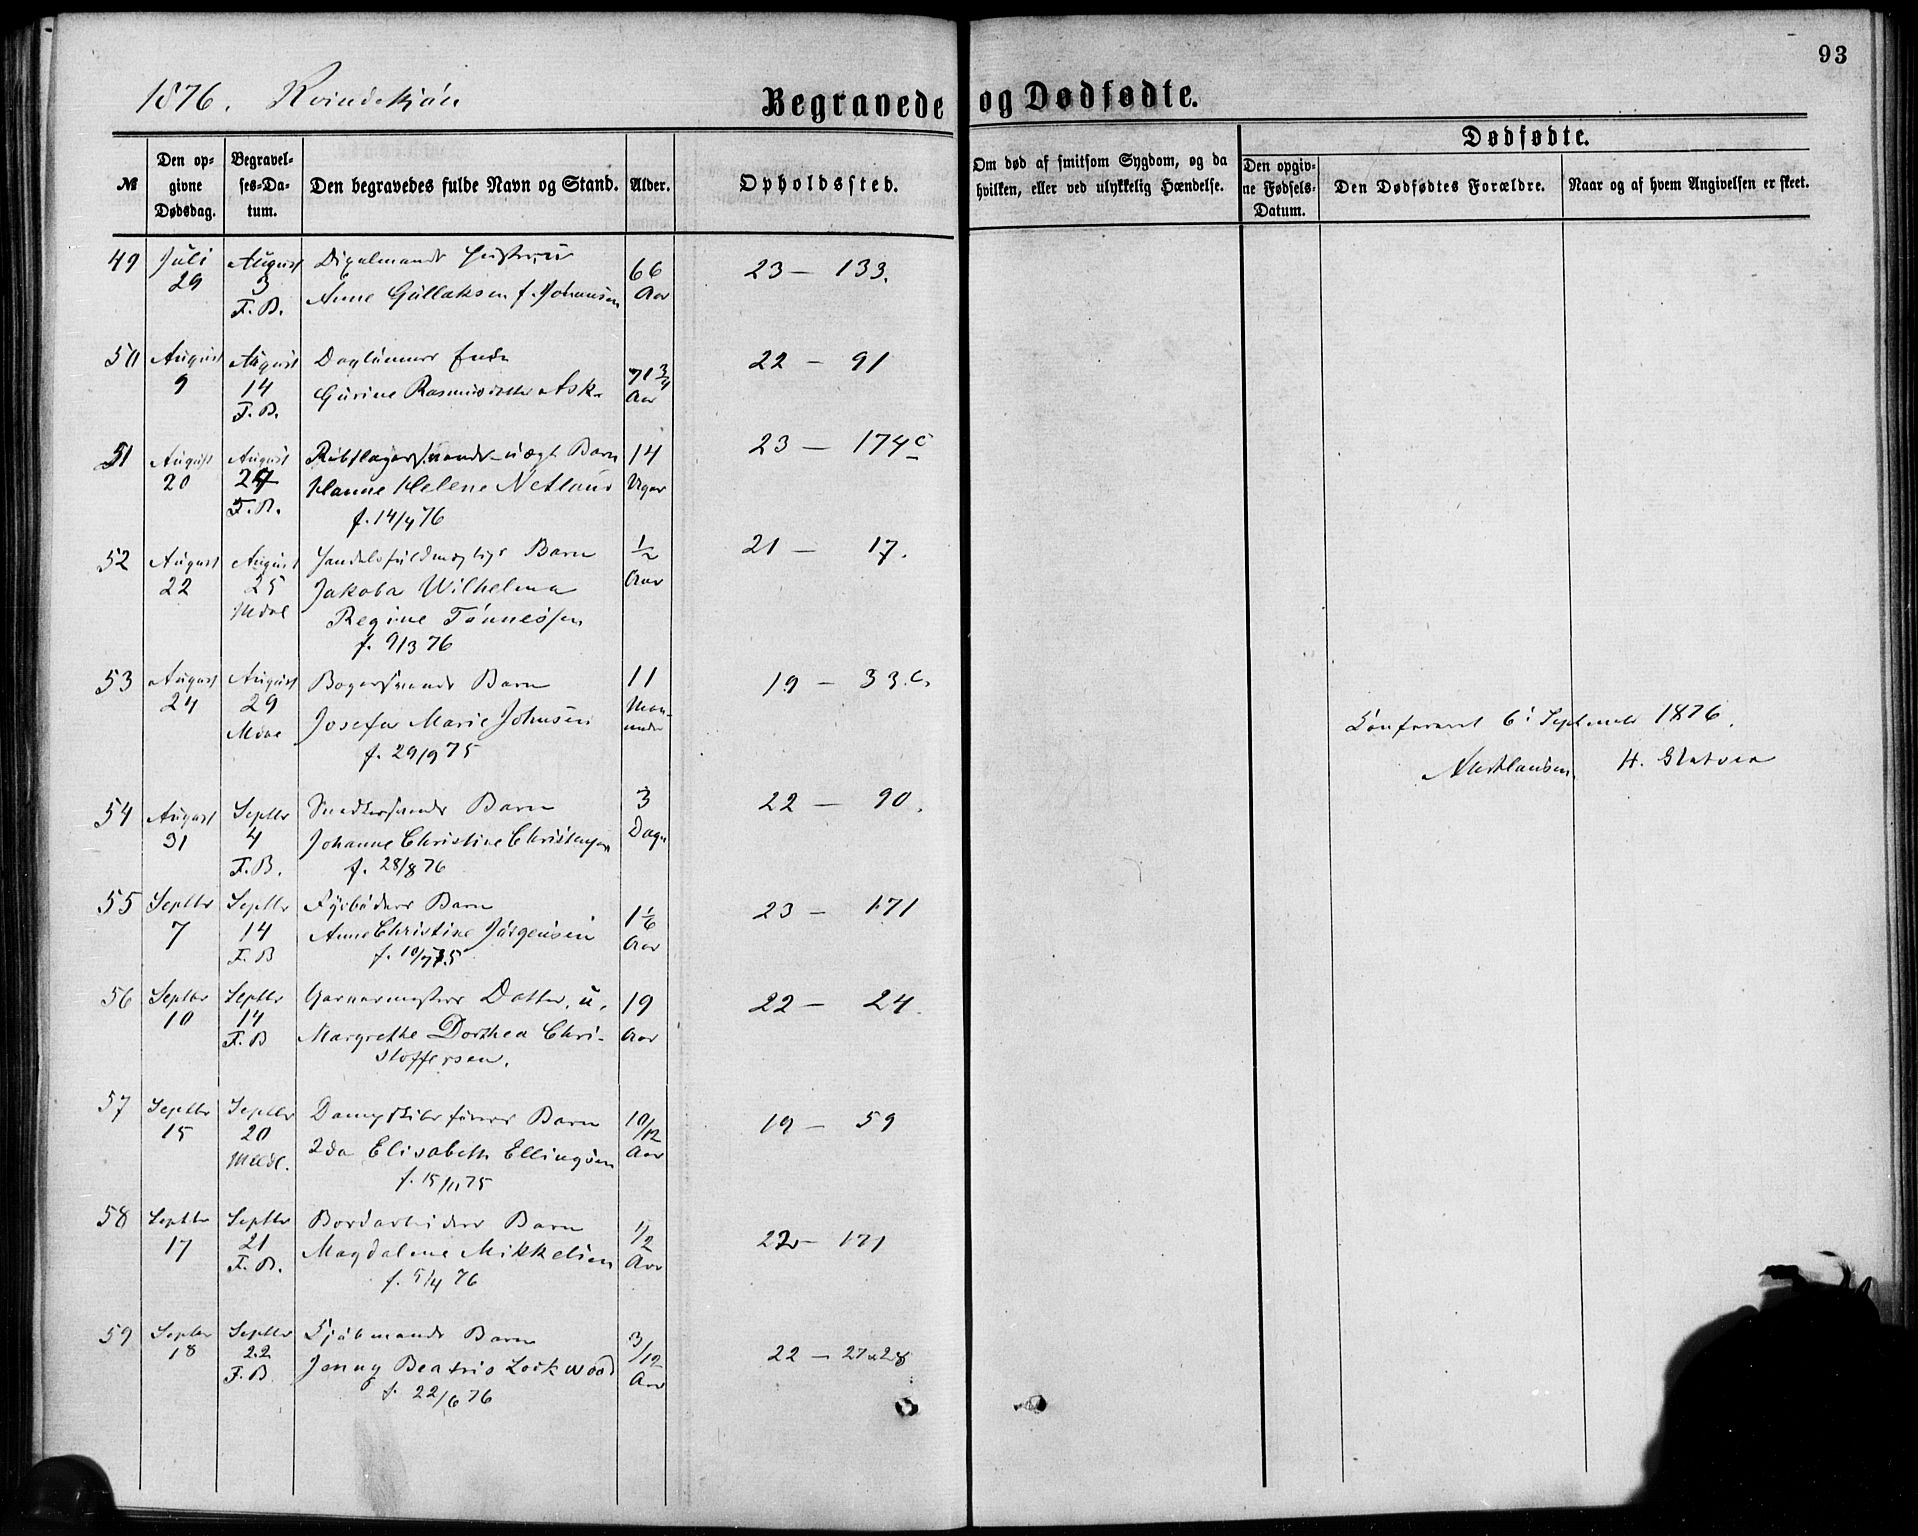 93
1876. Kvindekjön
Begravede og Dødfødte.
№
Den opgivne Dødsdag.
Begravelses-Datum.
Den begravedes fulde Navn og Stand.
Alder.
Opholdssted.
Om død af smitsom Sygdom, og da hvilken, eller ved ulykkelig Hændelse.
Dødfødte.
Den opgivne Fødsels-Datum.
Den Dødfødtes Forældre.
Naar og af hvem Angivelsen er skeet.
49 Juli August Hustru 66 23 – 133.
29 3 Anne Gullaksen f. Johansen Aar
F. B.
50 August August Daglönners Enke 71 3/4 22 – 91
9 14 Gurine Rasmusdatter Ask Aar
F. B.
51 August August uægt Barn 14 23 – 174c
20 24 Hanne Helene Netland Uger
F. B. f. 14/4 76
52 August August Handelsfuldmægtigs Barn 1/2 21 – 17.
22 25 Jakoba Wilhelma Aar
Mdal Regine Tönnessen
f. 9/3 76
53 August August Bagersvends Barn 11 19 – 33.c.
24 29 Josefa Marie Johnsen Maaneder
Mdal f. 29/9 75
Confereret 6' September 1876.
54 August Septbr Snedkersvends Barn 3 22 – 90.
31 4 Johanne Christine Christensen Dage
F. B. f. 28/8 76
55 Septbr Septbr Fyrbøders Barn 1 1/6 23 – 171
7 14 Anne Christine Jörgensen Aar
F. B f. 10/7 75
56 Septbr Septbr Garvermesters Datter, u. 19 22 – 24.
10 14 Margrethe Dorthea Chri- Aar
F. B stoffersen.
57 Septbr Septbr Dampskibsförers Barn 10/12 19 – 59
15 20 Ida Elisabeth Ellingsen Aar
Meddl. f. 15/11 75
58 Septbr Septbr Bordarbeiders Barn 1/2 22 – 171
17 21 Magdalene Mikkelsen Aar
F. B. f. 5/4 76
59 Septbr Septbr Sjömands Barn 3/12 22 – 27 a 28
18 22 Jenny Beatris Lockwood Aar
F. B f. 22/6 76